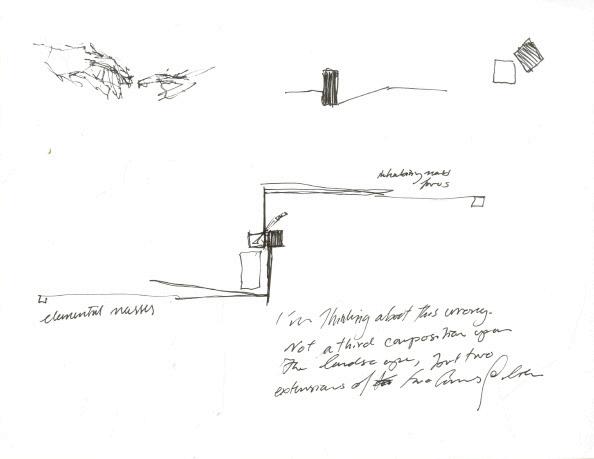 inhabiting mass
focus
elemental masses
I'm thinking about this wrong.
Not a third composition upon
the landscape, but two
extensions of two